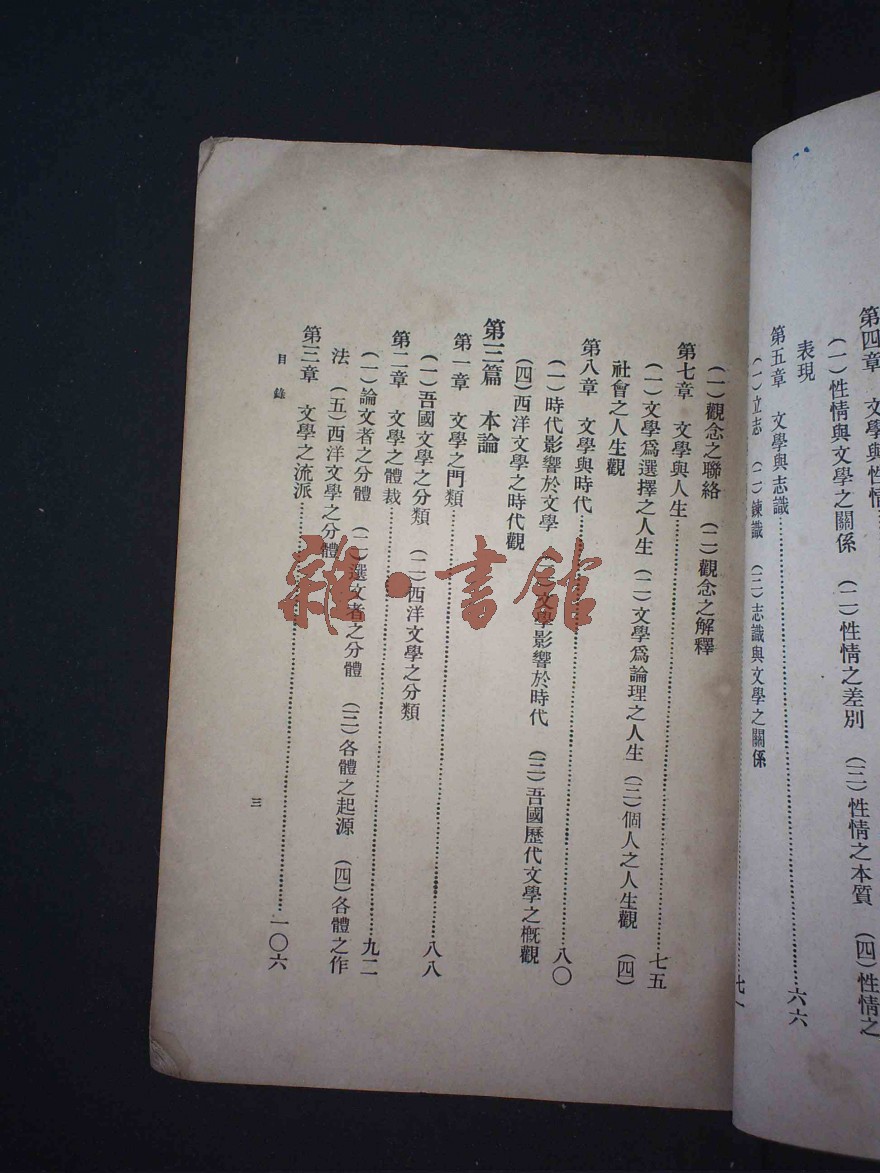 第四章　文學與性情
（一）性情與文學之關係　（二）性情之差別　（三）性情之本質　（四）性情之
表現
第五章　文學與志識……六六
（一）立志　（二）鍊識　（三）志識與文學之關係
……七一
（一）觀念之聯絡　（二）觀念之解釋
第七章　文學與人生……七五
（一）文學爲選擇之人生　（二）文學爲論理之人生　（三）個人之人生觀　（四）
社會之人生觀
第八章　文學與時代……八〇
（一）時代影響於文學　（二）文學影響於時代　（三）吾國歷代文學之概觀
（四）西洋文學之時代觀
第三篇　本論
第一章　文學之門類……八八
（一）吾國文學之分類　（二）西洋文學之分類
第二章　文學之體裁……九二
（一）論文者之分體　（二）選文者之分體　（三）各體之起源　（四）各體之作
法　（五）西洋文學之分體
第三章　文學之流派……一〇六
目錄
三
雜·書館